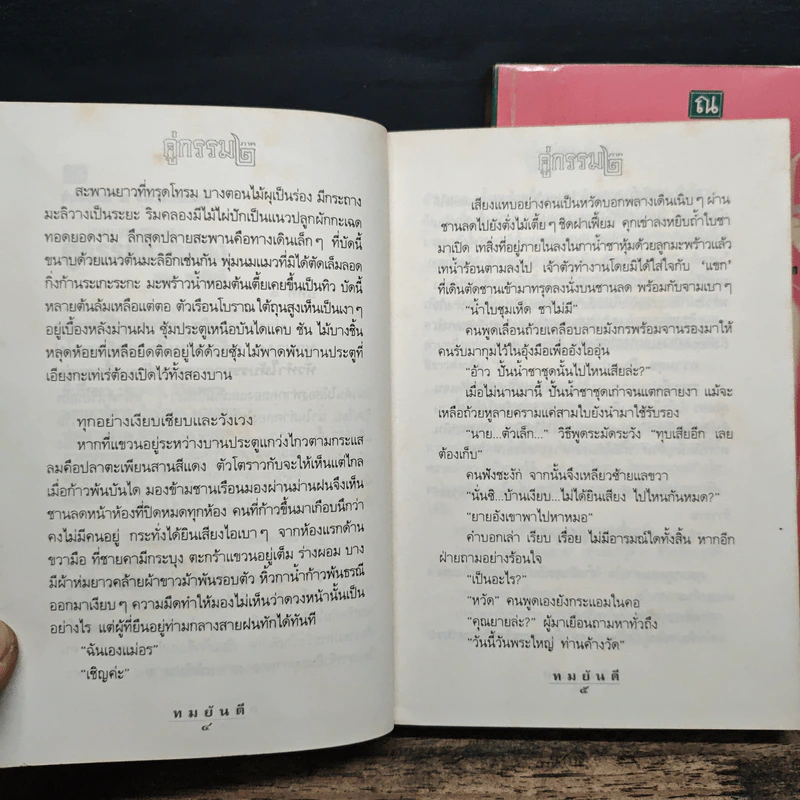 คู่กรรม ๒
สะพานยาวที่ทรุดโทรม บางตอนไม้ผุเป็นร่อง มีกระถาง
มะลิวางเป็นระยะ ริมคลองมีไม้ไผ่ปักเป็นแนวปลูกผักกะเฉด
ทอดยอดงาม ลึกสุดปลายสะพานคือทางเดินเล็กๆ ที่บัดนี้
ขนาบด้วยแนวต้นมะลิอีกเช่นกัน พุ่มนมแมวที่มิได้ตัดเล็มลอด
กิ่งก้านระเกะระกะ มะพร้าวน้ำหอมต้นเตี้ยเคยขึ้นเป็นทิว บัดนี้
หลายต้นล้มเหลือแต่ตอ ตัวเรือนโบราณใต้ถุนสูงเห็นเป็นเงาๆ
อยู่เบื้องหลังม่านฝน ซุ้มประตูเหนือบันไดแคบ ชัน ไม้บางชิ้น
หลุดห้อยที่เหลือยึดติดอยู่ได้ด้วยซุ้มไม้พาดพันบานประตูที่
เอียงกะเท่เร่ต้องเปิดไว้ทั้งสองบาน
ทุกอย่างเงียบเชียบและวังเวง
หากที่แขวนอยู่ระหว่างบานประตูแกว่งไกวตามกระแส
ลมคือปลาตะเพียนสานสีแดง ตัวโตราวกับจะให้เห็นแต่ไกล
เมื่อก้าวพ้นบันได มองข้ามชานเรือนมองผ่านม่านฝนจึงเห็น
ชานลดหน้าห้องที่ปิดหมดทุกห้อง คนที่ก้าวขึ้นมาเกือบนึกว่า
คงไม่มีคนอยู่ กระทั่งได้ยินเสียงไอเบาๆ จากห้องแรกด้าน
ขวามือ ที่ชายคามีกระบุง ตะกร้าแขวนอยู่เต็ม ร่างผอม บาง
มีผ้าห่มยาวคล้ายผ้าขาวม้าพันรอบตัว หิ้วกาน้ำก้าวพ้นธรณี
ออกมาเงียบๆ ความมืดทำให้มองไม่เห็นว่าดวงหน้านั้นเป็น
อย่างไร แต่ผู้ที่ยืนอยู่ท่ามกลางสายฝนทักได้ทันที
“ฉันเองแม่อร”
“เชิญค่ะ”
ทมยันตี
๔
ณ
คู่กรรม ๒
เสียงแหบอย่างคนเป็นหวัดบอกพลางเดินเนิบๆ ผ่าน
ชานลดไปยังตั่งไม้เตี้ยๆ ชิดฝาเฟี้ยม คุกเข่าลงหยิบถ้ำใบชา
มาเปิด เทสิ่งที่อยู่ภายในลงในกาน้ำชาหุ้มด้วยลูกมะพร้าวแล้ว
เทน้ำร้อนตามลงไป เจ้าตัวทำงานโดยมิได้ใส่ใจกับ ‘แขก’
ที่เดินตัดชานเข้ามาทรุดลงนั่งบนชานลด พร้อมกับจามเบาๆ
“น้ำใบชุมเห็ด ชาไม่มี”
คนพูดเลื่อนถ้วยเคลือบลายมังกรพร้อมจานรองมาให้
คนรับมากุมไว้ในอุ้งมือเพื่ออังไออุ่น
“อ้าว ปั้นน้ำชาชุดนั้นไปไหนเสียล่ะ?”
เมื่อไม่นานมานี้ ปั้นน้ำชาชุดเก่าจนแตกลายงา แม้จะ
เหลือถ้วยหูลายครามแค่สามใบยังนำมาใช้รับรอง
“นาย...ตัวเล็ก...” วิธีพูดระมัดระวัง “ทุบเสียอีก เลย
ต้องเก็บ”
คนฟังชะงัก จากนั้นจึงเหลียวซ้ายแลขวา
“นั่นซิ...บ้านเงียบ...ไม่ได้ยินเสียง ไปไหนกันหมด?”
“ยายอังเขาพาไปหาหมอ”
คำบอกเล่า เรียบ เรื่อย ไม่มีอารมณ์ใดทั้งสิ้น หากอีก
ฝ่ายถามอย่างร้อนใจ
“เป็นอะไร?”
“หวัด” คนพูดเองยังกระแอมในคอ
“คุณยายล่ะ?” ผู้มาเยือนถามหาทั่วถึง
“วันนี้วันพระใหญ่ ท่านค้างวัด”
ทมยันตี
๕